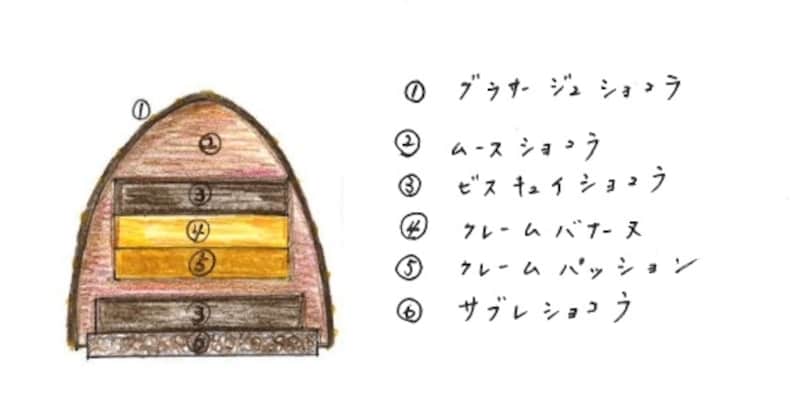 ①
②
③
④
⑤
③
⑥
① グラサージュ ショコラ
② ムース ショコラ
③ ビスキュイ ショコラ
④ クレーム バナーヌ
⑤ クレーム パッション
⑥ サブレ ショコラ